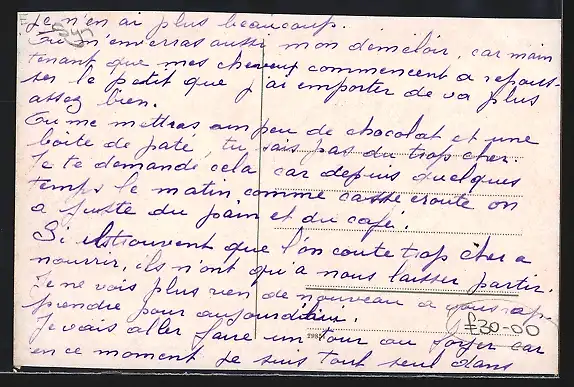 Je n'en ai plus beaucoup.
Tu m'enverras aussi mon démêloir, car main
tenant que mes cheveux commencent à repous-
ser le petit que j'ai emporter de va plus
assez bien.
Tu me mettras un peu de chocolat et une
boite de paté, tu sais pas du trop cher.
Je te demande cela car depuis quelques
temps le matin comme casse croute on
a juste du pain et du café.
Si ils trouvent que l'on coute trop cher a
nourrir, ils n'ont qu'a nous laisser partir.
Je ne vois plus rien de nouveau a vous ap-
prendre pour aujourd'hui.
Je vais aller faire un tour au foyer car
en ce moment je suis tout seul dans
£30-00